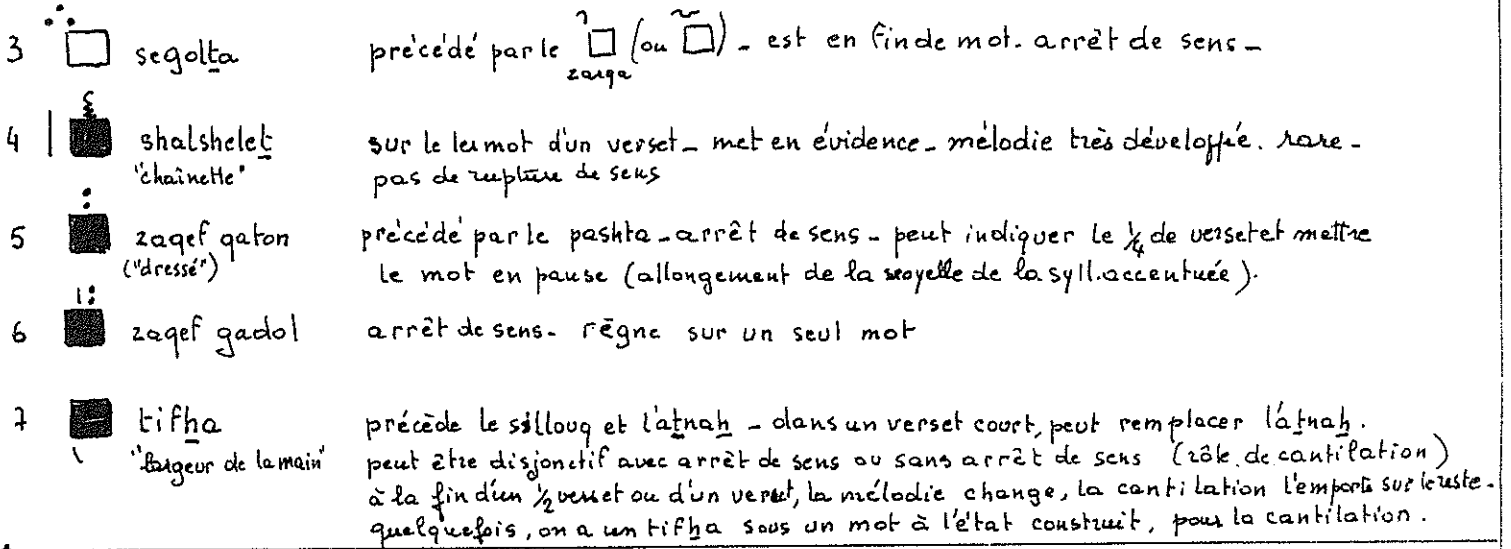 3 segolta précédé par le (ou ) - est en fin de mot. arrêt de sens -
zarqa
4 shalshelet sur le 1er mot d'un verset - met en évidence - mélodie très développée. rare -
"chaînette" pas de rupture de sens
5 zaqef qaton précédé par le pashta - arrêt de sens - peut indiquer le 1/4 de verset et mettre
("dressé") le mot en pause (allongement de la voyelle de la syll. accentuée).
6 zaqef gadol arrêt de sens - règne sur un seul mot
7 tifha précède le silloug et l'atnah - dans un verset court, peut remplacer l'atnah.
"largeur de la main" peut être disjonctif avec arrêt de sens ou sans arrêt de sens (rôle de cantilation)
à la fin d'un 1/2 verset ou d'un verset, la mélodie change, la cantilation l'emporte sur le reste -
quelquefois, on a un tifha sous un mot à l'état construit, pour la cantilation.